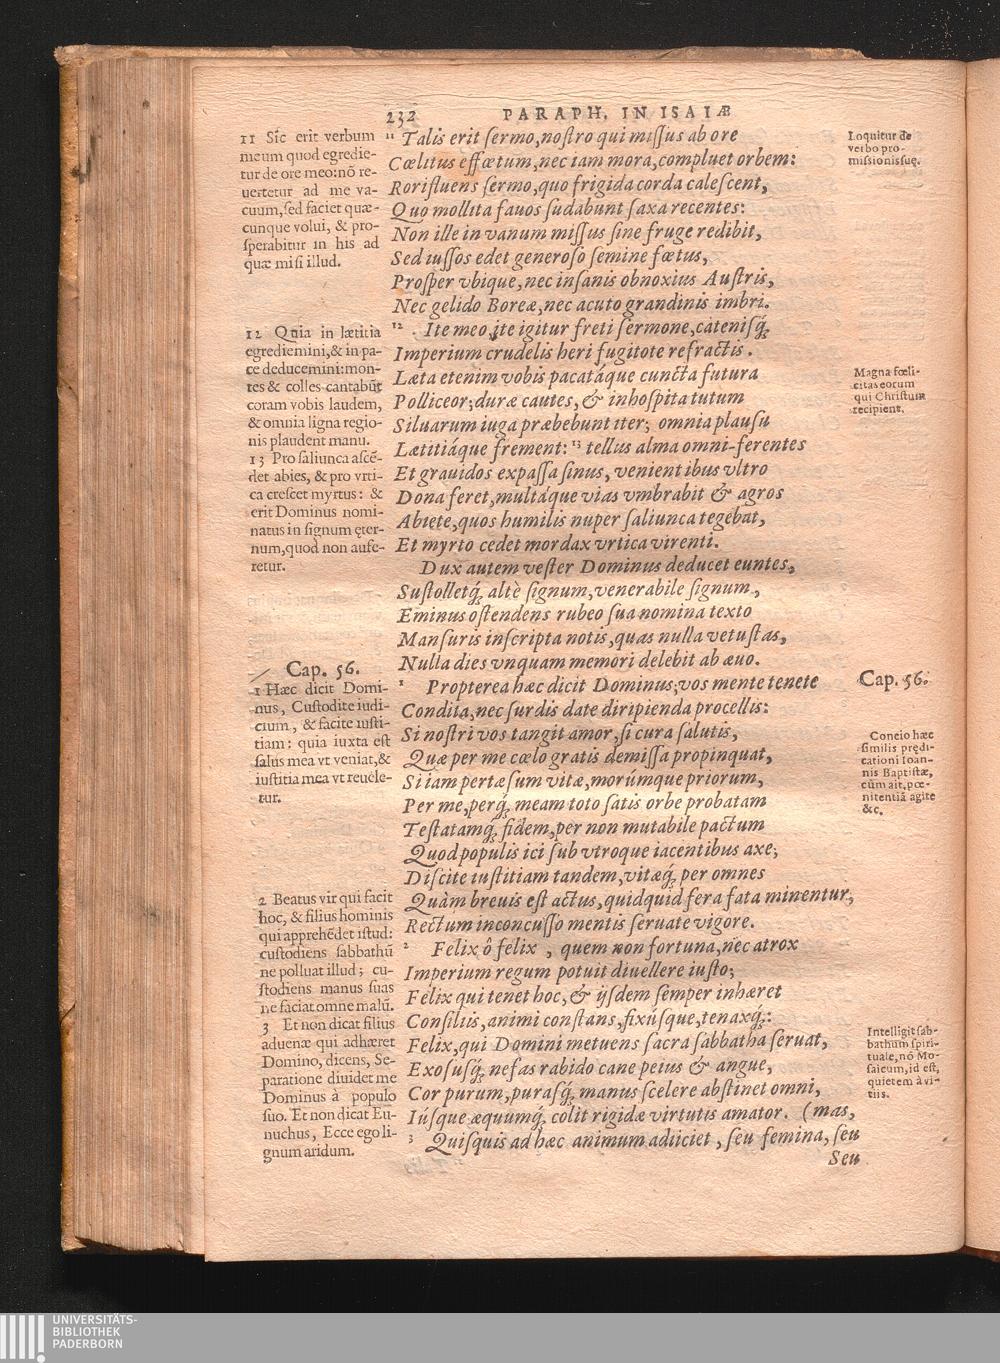 232 PARAPH. IN ISAIÆ
11 Sic erit verbum
meum quod egredie-
tur de ore meo: nō re-
uertetur ad me va-
cuum, sed faciet quæ-
cunque volui, & pro-
sperabitur in his ad
quæ misi illud.
12 Quia in lætitia
egrediemini, & in pa-
ce deducemini: mon-
tes & colles cantabūt
coram vobis laudem,
& omnia ligna regio-
nis plaudent manu.
13 Pro saliunca ascē-
det abies, & pro vrti-
ca crescet myrtus: &
erit Dominus nomi-
natus in signum ęter-
num, quod non aufe-
retur.
Cap. 56.
1 Hæc dicit Domi-
nus, Custodite iudi-
cium, & facite iusti-
tiam: quia iuxta est
salus mea vt veniat, &
iustitia mea vt reuele-
tur.
2 Beatus vir qui facit
hoc, & filius hominis
qui apprehēdet istud:
custodiens sabbathū
ne polluat illud; cu-
stodiens manus suas
ne faciat omne malū.
3 Et non dicat filius
aduenæ qui adhæret
Domino, dicens, Se-
paratione diuidet me
Dominus à populo
suo. Et non dicat Eu-
nuchus, Ecce ego li-
gnum aridum.
11 Talis erit sermo, nostro qui missus ab ore
Cœlitus effœtum, nec iam mora, compluet orbem:
Rorifluens sermo, quo frigida corda calescent,
Quo mollita fauos sudabunt saxa recentes:
Non ille in vanum missus sine fruge redibit,
Sed iussos edet generoso semine fœtus,
Prosper vbique, nec insanis obnoxius Austris,
Nec gelido Boreæ, nec acuto grandinis imbri.
12 Ite meo, ite igitur freti sermone, catenisq́;
Imperium crudelis heri fugitote refractis.
Læta etenim vobis pacatáque cuncta futura
Polliceor; duræ cautes, & inhospita tutum
Siluarum iuga præbebunt iter; omnia plausu
Lætitiáque frement: 13 tellus alma omni-ferentes
Et grauidos expassa sinus, venientibus vltro
Dona feret, multáque vias vmbrabit & agros
Abiete, quos humilis nuper saliunca tegebat,
Et myrto cedet mordax vrtica virenti.
Dux autem vester Dominus deducet euntes,
Sustolletq́; altè signum, venerabile signum,
Eminus ostendens rubeo sua nomina texto
Mansuris inscripta notis, quas nulla vetustas,
Nulla dies vnquam memori delebit ab æuo.
1 Propterea hæc dicit Dominus; vos mente tenete
Condita, nec surdis date diripienda procellis:
Si nostri vos tangit amor, si cura salutis,
Quæ per me cœlo gratis demissa propinquat,
Si iam pertæsum vitæ, morúmque priorum,
Per me, perq́; meam toto satis orbe probatam
Testatamq́; fidem, per non mutabile pactum
Quod populis ici sub vtroque iacentibus axe;
Discite iustitiam tandem, vitæq́; per omnes
Quàm breuis est actus, quidquid fera fata minentur,
Rectum inconcusso mentis seruate vigore.
2 Felix ô felix, quem non fortuna, nec atrox
Imperium regum potuit diuellere iusto;
Felix qui tenet hoc, & ijsdem semper inhæret
Consiliis, animi constans, fixúsque, tenaxq́;:
Felix, qui Domini metuens sacra sabbatha seruat,
Exosusq́; nefas rabido cane peius & angue,
Cor purum, purasq́; manus scelere abstinet omni,
Iúsque æquumq́; colit rigidæ virtutis amator. (mas,
3 Quisquis ad hæc animum adiiciet, seu femina, seu
Seu
Loquitur de
verbo pro-
missionis suę.
Magna fœli-
citas eorum
qui Christum
recipient.
Cap. 56.
Concio hæc
similis prędi-
cationi Ioan-
nis Baptistæ,
cùm ait, pœ-
nitentiā agite
&c.
Intelligit sab-
bathum spiri-
tuale, nō Mo-
saicum, id est,
quietem à vi-
tiis.
UNIVERSITÄTS-
BIBLIOTHEK
PADERBORN